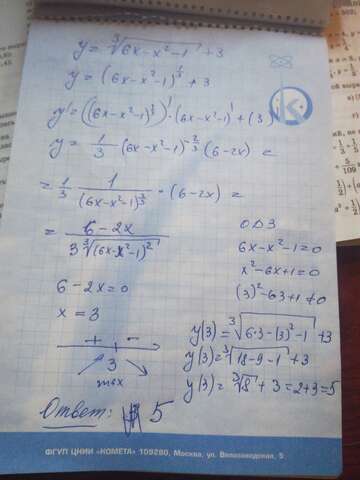 y = ∛(6x-x²-1) + 3
y = (6x-x²-1)^(1/3) + 3
y' = ((6x-x²-1)^(1/3))' · (6x-x²-1)' + (3)'
y = 1/3 (6x-x²-1)^(-2/3) (6-2x) =
= 1/3 · 1/(6x-x²-1)^(2/3) · (6-2x) =
= (6-2x)/(3∛(6x-x²-1)²)
6-2x=0
x = 3
+ -
3
max
ОДЗ
6x-x²-1=0
x²-6x+1=0
(3)²-6·3+1≠0
y(3) = ∛(6·3-(3)²-1) +3
y(3) = ∛(18-9-1) +3
y(3) = ∛8 + 3 = 2+3=5
Ответ: 5
ФГУП ЦНИИ «КОМЕТА» 109280, Москва, ул. Велозаводская, 5